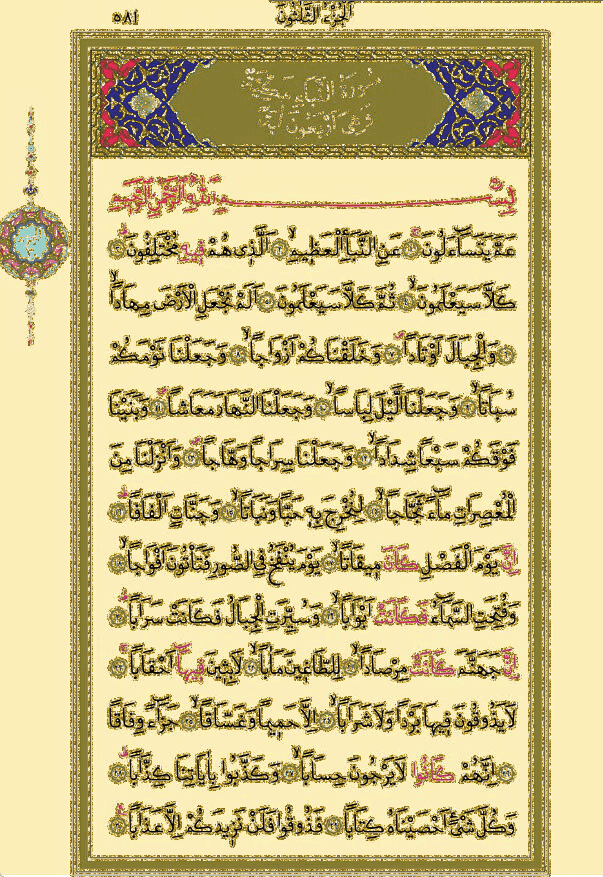 الجزء الثلاثون
٥٨١
سورة النبإ مكية
وهي اربعون آية
بسم الله الرحمن الرحيم
عَمَّ يَتَسَاءَلُونَ ١ عَنِ النَّبَإِ الْعَظِيمِ ٢ اَلَّذِى هُمْ فِيهِ مُخْتَلِفُونَ ٣
كَلَّا سَيَعْلَمُونَ ٤ ثُمَّ كَلَّا سَيَعْلَمُونَ ٥ اَلَمْ نَجْعَلِ الْاَرْضَ مِهَاداً
٦ وَالْجِبَالَ اَوْتَاداً ٧ وَخَلَقْنَاكُمْ اَزْوَاجاً ٨ وَجَعَلْنَا نَوْمَكُمْ
سُبَاتاً ٩ وَجَعَلْنَا الَّيْلَ لِبَاساً ١٠ وَجَعَلْنَا النَّهَارَ مَعَاشاً ١١ وَبَنَيْنَا
فَوْقَكُمْ سَبْعاً شِدَاداً ١٢ وَجَعَلْنَا سِرَاجاً وَهَّاجاً ١٣ وَاَنْزَلْنَا مِنَ
الْمُعْصِرَاتِ مَاءً ثَجَّاجاً ١٤ لِنُخْرِجَ بِهِ حَبّاً وَنَبَاتاً ١٥ وَجَنَّاتٍ اَلْفَافاً ١٦
اِنَّ يَوْمَ الْفَصْلِ كَانَ مِيقَاتاً ١٧ يَوْمَ يُنْفَخُ فِى الصُّورِ فَتَأْتُونَ اَفْوَاجاً ١٨
وَفُتِحَتِ السَّمَاءُ فَكَانَتْ اَبْوَاباً ١٩ وَسُيِّرَتِ الْجِبَالُ فَكَانَتْ سَرَاباً ٢٠
اِنَّ جَهَنَّمَ كَانَتْ مِرْصَاداً ٢١ لِلطَّاغِينَ مَاٰباً ٢٢ لَابِثِينَ فِيهَا اَحْقَاباً ٢٣
لَا يَذُوقُونَ فِيهَا بَرْداً وَلَا شَرَاباً ٢٤ اِلَّا حَمِيماً وَغَسَّاقاً ٢٥ جَزَاءً وِفَاقاً
٢٦ اِنَّهُمْ كَانُوا لَا يَرْجُونَ حِسَاباً ٢٧ وَكَذَّبُوا بِاٰيَاتِنَا كِذَّاباً ٢٨
وَكُلَّ شَىْءٍ اَحْصَيْنَاهُ كِتَاباً ٢٩ فَذُوقُوا فَلَنْ نَزِيدَكُمْ اِلَّا عَذَاباً ٣٠